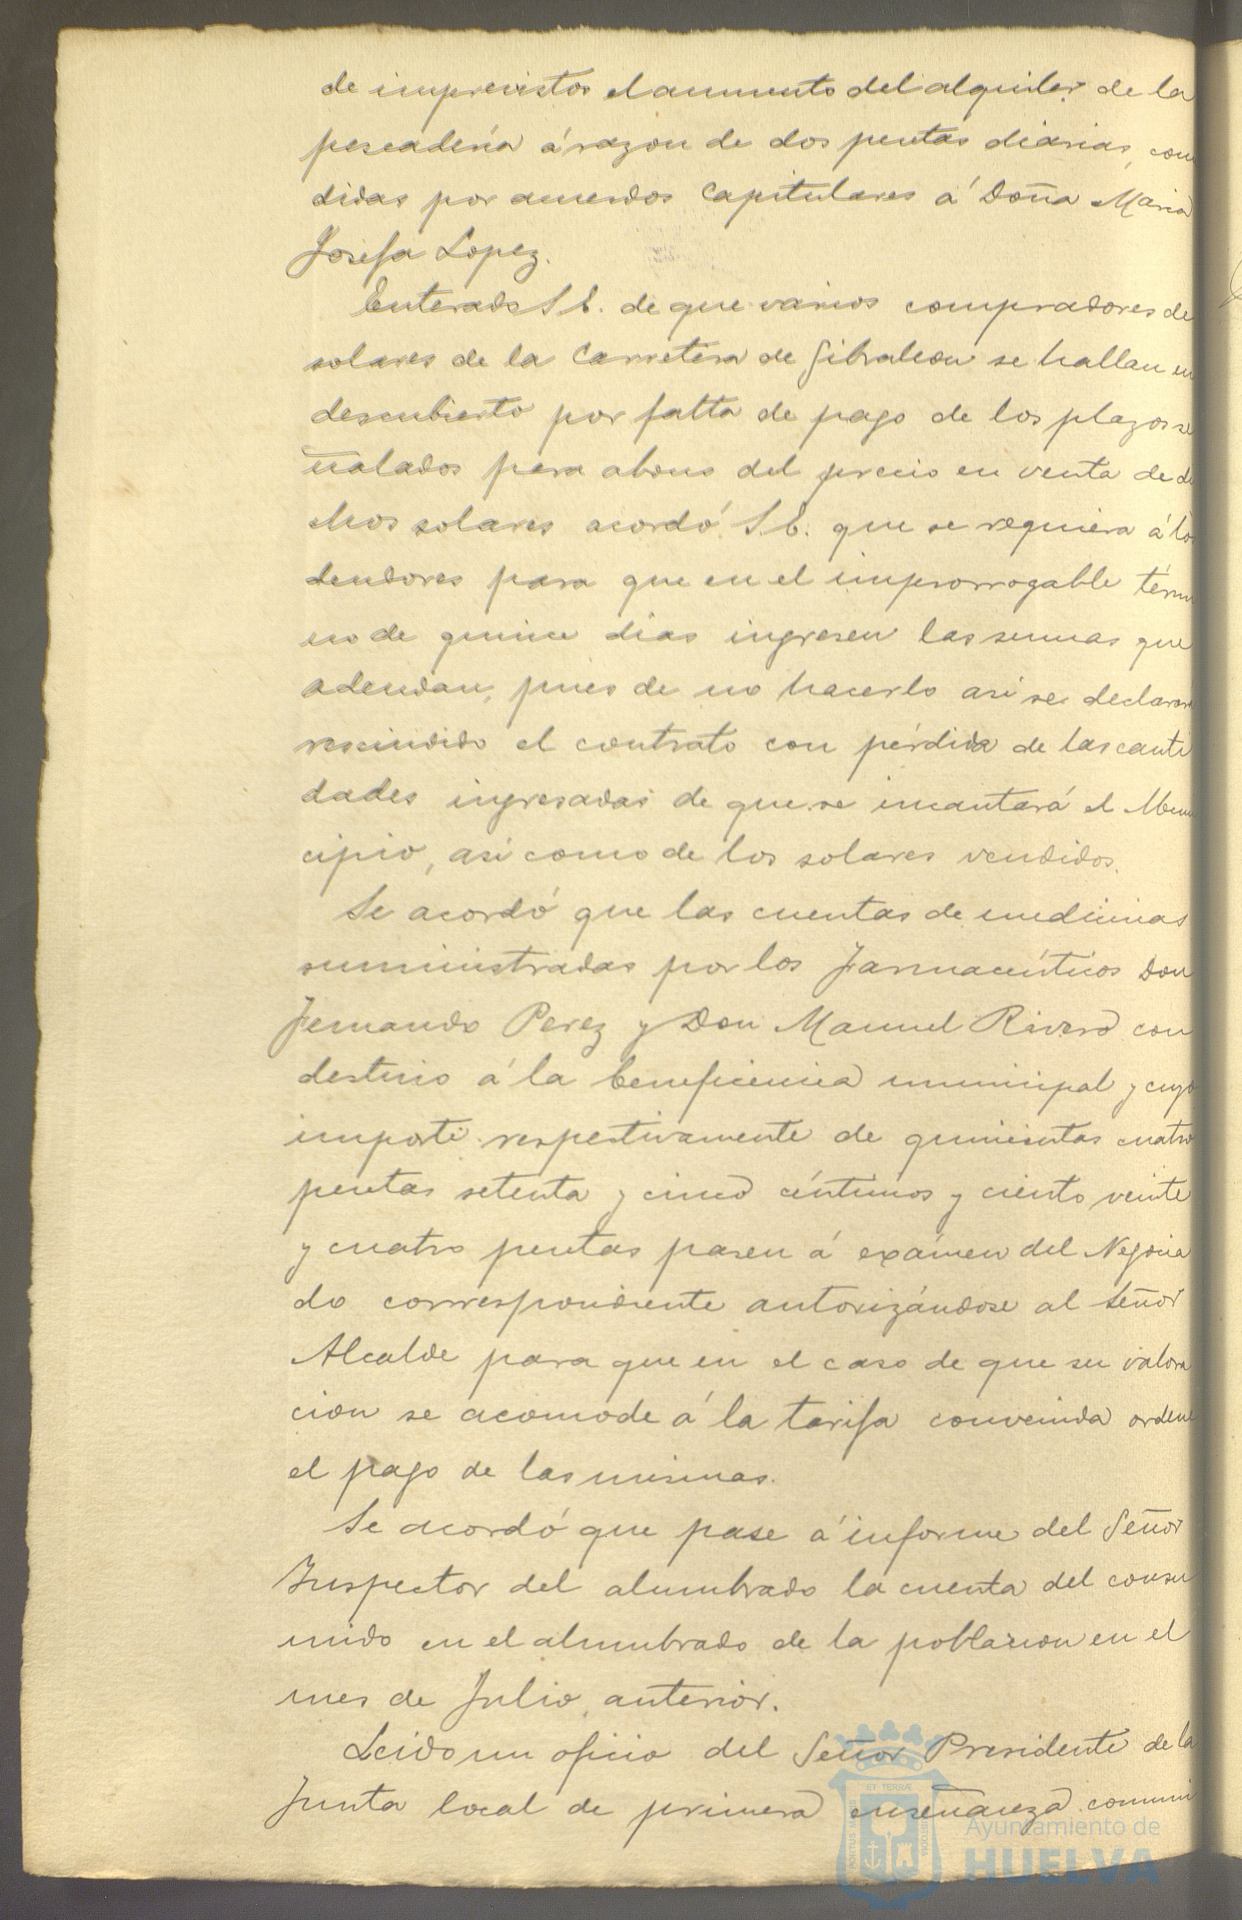 de imprevistos el aumento del alquiler de la
pescadería á razon de dos pesetas diarias, con
didas por acuerdos Capitulares á Doña Maria
Josefa Lopez.
Enterado S. E. de que varios compradores de
solares de la Carretera de Gibraleon se hallan en
descubierto por falta de pago de los plazos se
ñalados para abono del precio en venta de di
chos solares acordó S. E. que se requiera á los
deudores para que en el improrrogable térmi
no de quince dias ingresen las sumas que
adeudan, pues de no hacerlo asi se declarará
rescindido el contrato con pérdida de las canti
dades ingresadas de que se incautará el Muni
cipio, asi como de los solares vendidos.
Se acordó que las cuentas de medicinas
suministradas por los Farmacéuticos Don
Fernando Perez y Don Manuel Rivero con
destino á la beneficencia municipal y cuyo
importe respectivamente de quinientas cuatro
pesetas setenta y cinco céntimos y ciento veinte
y cuatro pesetas pasen á exámen del Negocia
do correspondiente autorizándose al Señor
Alcalde para que en el caso de que su valora
cion se acomode á la tarifa convenida ordene
el pago de las mismas.
Se acordó que pase á informe del Señor
Inspector del alumbrado la cuenta del consu
mido en el alumbrado de la poblacion en el
mes de Julio anterior.
Leido un oficio del Señor Presidente de la
Junta local de primera enseñanza comuni
Ayuntamiento de
HUELVA